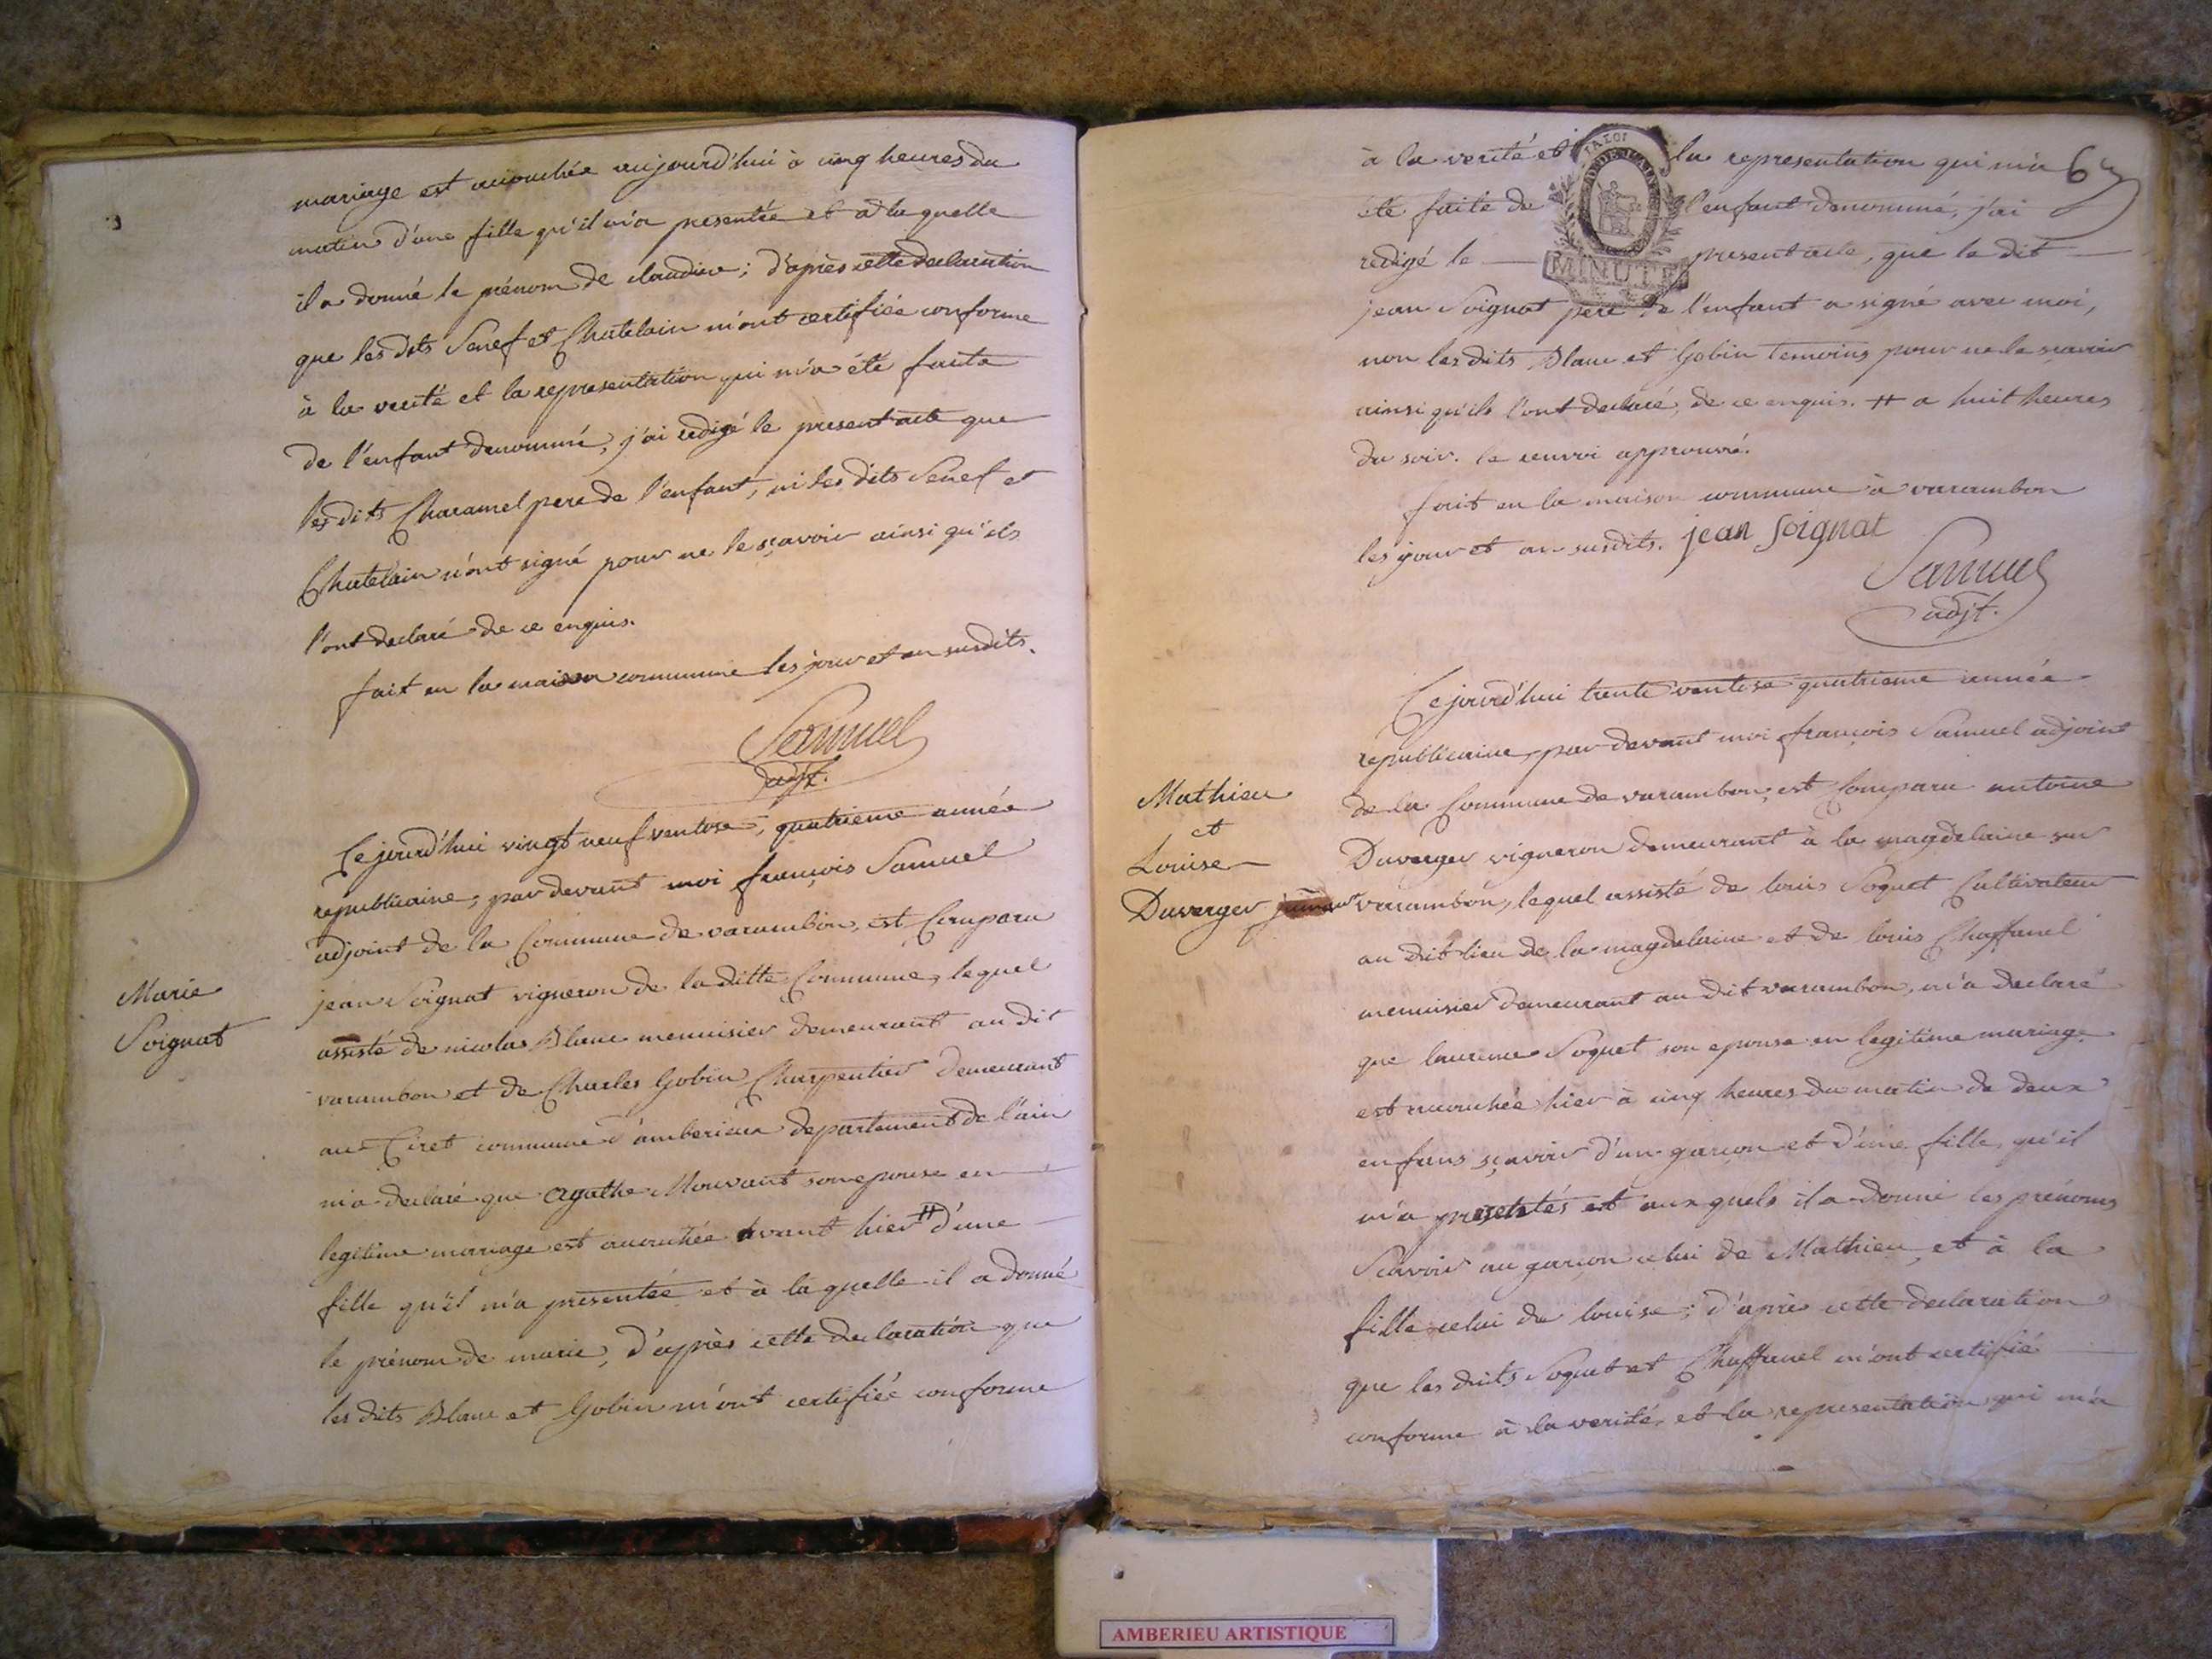 mariage est accouchée aujourd'hui à cinq heures du
matin d'une fille qu'il m'a presentée et à la quelle
il a donné le prénom de claudine; d'après cette declaration
que les dits Senef et Chatelain m'ont certifiée conforme
à la verité et la representation qui m'a été faite
de l'enfant denommé, j'ai redigé le present acte que
les dits Charamel pere de l'enfant, ni les dits Senef et
Chatelain n'ont signé pour ne le sçavoir ainsi qu'ils
l'ont declaré de ce enquis.
fait en la maison commune les jour et an susdits.
Samuel
adjt.
Marie
Soignat
Cejourd'hui vingt neuf ventose, quatrieme année
republicaine, par devant moi françois Samuel
adjoint de la Commune de varambon, est Comparu
jean Soignat vigneron de la ditte Commune, lequel
assisté de nicolas Blanc menuisier demeurant au dit
varambon et de Charles Gobin Charpentier demeurant
au Tiret commune d'amberieux departement de l'ain
m'a declaré que agathe Mouvant son epouse en
legitime mariage est accouchée avant hier # d'une
fille qu'il m'a presentée et à la quelle il a donné
le prénom de marie, d'après cette declaration que
les dits Blanc et Gobin m'ont certifiée conforme
67
LA LOI
MINUTE
à la verité et la representation qui m'a
été faite de l'enfant denommé, j'ai
redigé le present acte, que le dit
jean Soignat pere de l'enfant a signé avec moi,
non les dits Blanc et Gobin temoins pour ne le sçavoir
ainsi qu'ils l'ont declaré, de ce enquis. # a huit heures
du soir. le renvoi approuvé.
fait en la maison commune à varambon
les jour et an susdits. jean Soignat
Samuel
adjt.
Mathieu
et
Louise
Duverger jumeaux
Cejourd'hui trente ventose quatrieme année
republicaine, par devant moi françois Samuel adjoint
de la Commune de varambon, est Comparu antoine
Duverger vigneron demeurant à la magdelaine sur
varambon, lequel assisté de louis Soquet Cultivateur
au dit lieu de la magdelaine et de louis Chaffanel
menuisier demeurant au dit varambon, m'a declaré
que laurence Soquet son epouse en legitime mariage
est accouchée hier à cinq heures du matin de deux
enfans sçavoir d'un garcon et d'une fille, qu'il
m'a presentés et aux quels il a donné les prénoms
Scavoir au garcon celui de Mathieu, et à la
fille celui de louise; d'après cette declaration
que les dits Soquet et Chaffanel m'ont certifié
conforme à la verité, et la representation qui m'a
AMBERIEU ARTISTIQUE